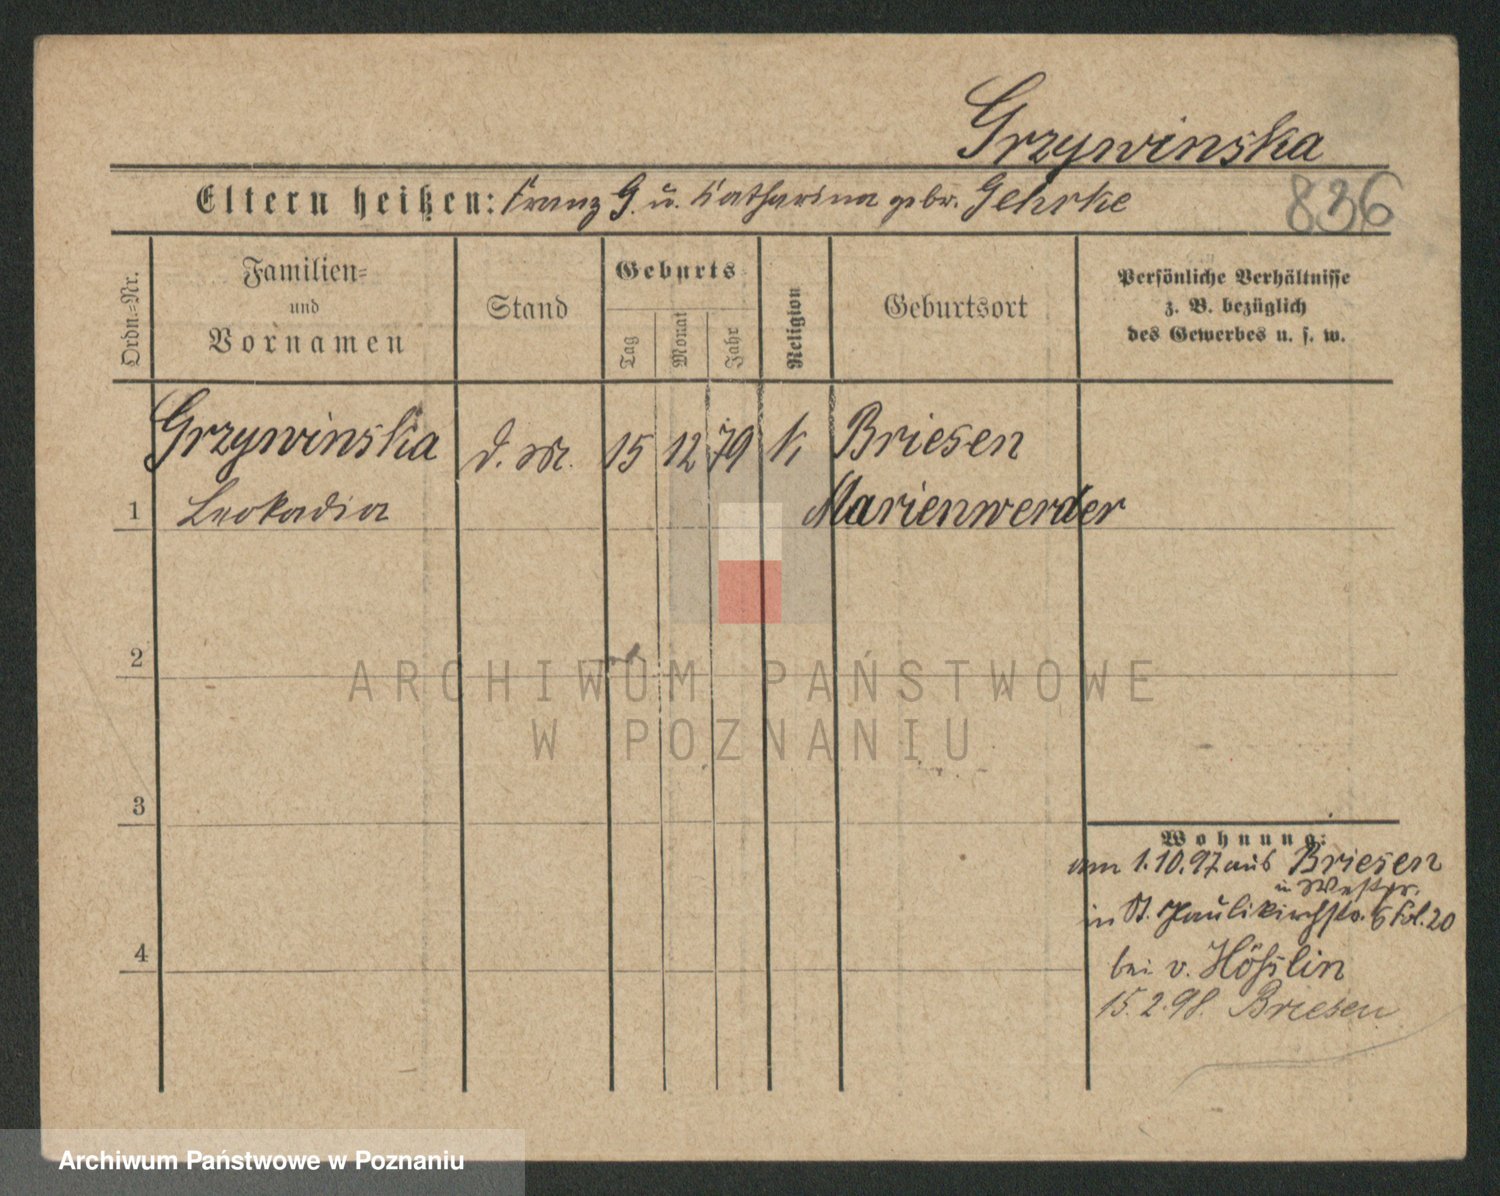 Grzywinska
Eltern heißen: Franz G. u. Katharina gebr. Gehrke
836
Ordn.=Nr.
Familien=
und
Vornamen
Stand
Geburts
Tag
Monat
Jahr
Religion
Geburtsort
Persönliche Verhältnisse
z. B. bezüglich
des Gewerbes u. s. w.
Grzywinska d. M. 15 12 79 k. Briesen
1 Leokadia Marienwerder
2
3
4
Wohnung:
am 1.10.97 aus Briesen
in Westpr.
in St. Paulikirchstr. 6 Fol. 20
bei v. Hößlin
15.2.98. Briesen
ARCHIWUM PAŃSTWOWE
W POZNANIU
Archiwum Państwowe w Poznaniu